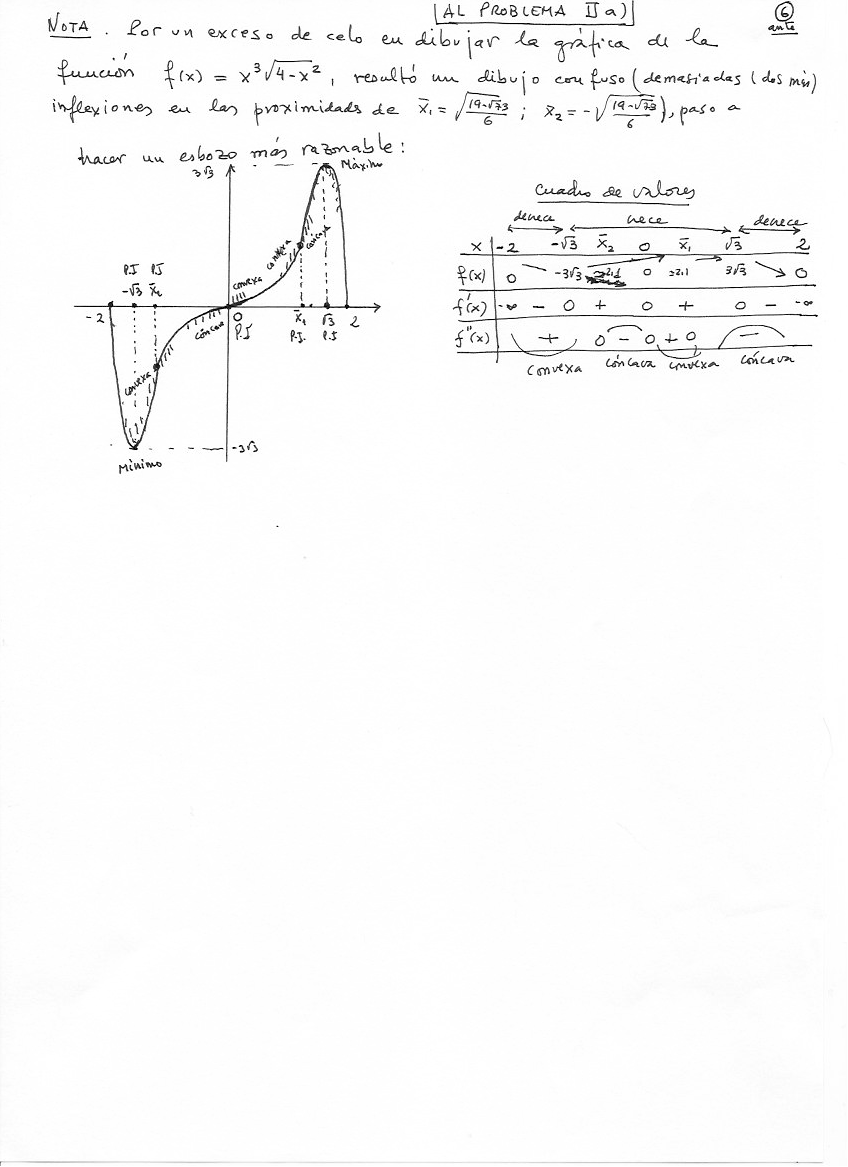 [AL PROBLEMA II a)]
6
ante
NOTA. Por un exceso de celo en dibujar la gráfica de la
función f(x) = x³√4-x², resultó un dibujo confuso (demasiadas (dos más)
inflexiones en las proximidads de x̄₁ = √(19-√73)/6 ; x̄₂ = -√(19-√73)/6), paso a
hacer un esbozo más razonable:
3√3
Máximo
convexa
cóncava
convexa
P.I P.I
-√3 x̄₂
-2
cóncava
0
P.I
x̄₁ √3 2
P.I. P.I
convexa
-3√3
Mínimo
Cuadro de valores
decrece crece decrece
x -2 -√3 x̄₂ 0 x̄₁ √3 2
f(x) 0 -3√3 0 ≃2,1 3√3 0
f'(x) -∞ - 0 + 0 + 0 - -∞
f''(x) + 0 - 0 + 0 -
convexa cóncava convexa cóncava